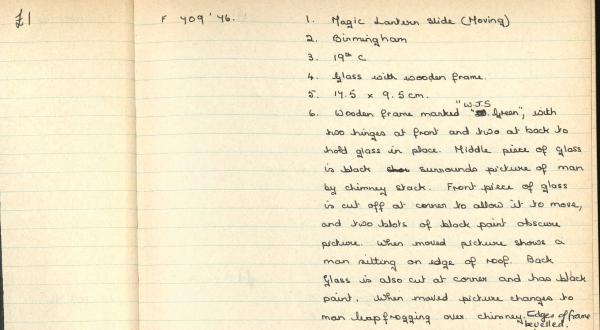 £1
F 409 '76.
1. Magic Lantern Slide (Moving)
2. Birmingham
3. 19th C
4. Glass with wooden frame.
5. 17.5 x 9.5 cm.
6. Wooden frame marked "W.J.S Green", with
two hinges at front and two at back to
hold glass in place. Middle piece of glass
is black surrounds picture of man
by chimney stack. Front piece of glass
is cut off at corner to allow it to move,
and two blots of black paint obscure
picture. When moved picture shows a
man sitting on edge of roof. Back
glass is also cut at corner and has black
paint. When moved picture changes to
man leapfrogging over chimney. Edges of frame
bevelled.